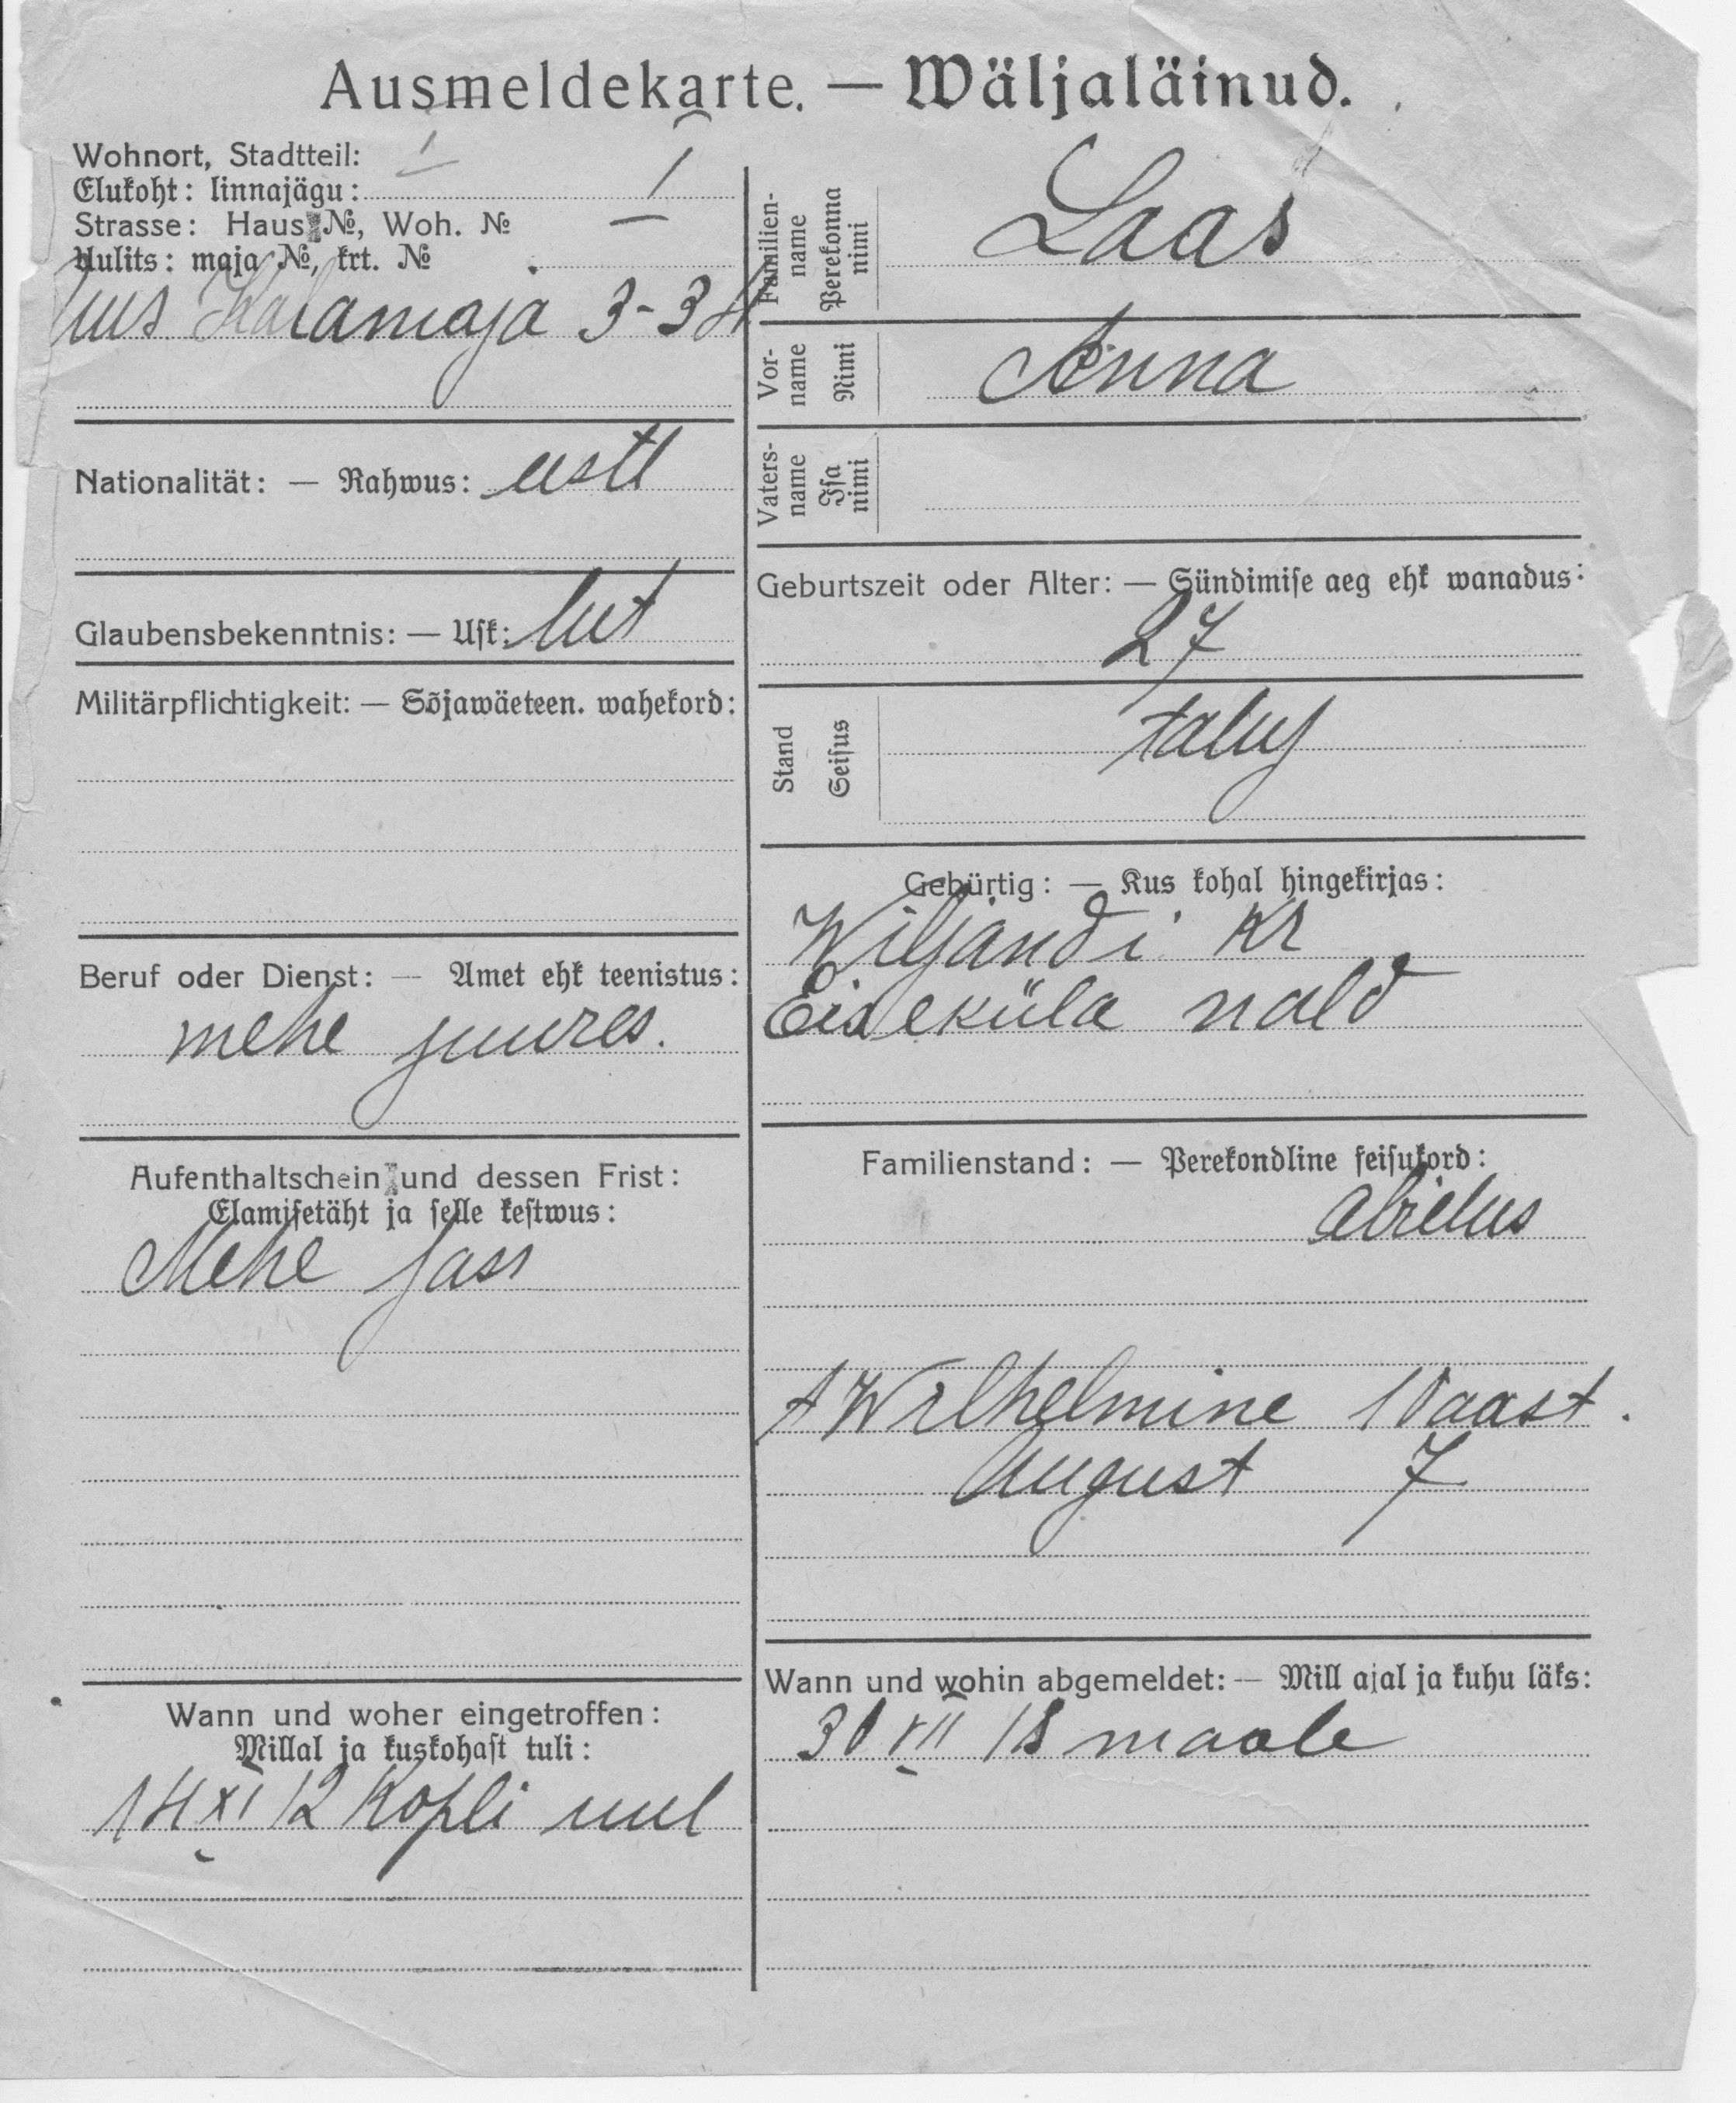 Ausmeldekarte. — Wäljaläinud.
Wohnort, Stadtteil:
Elukoht: linnajägu: I
Strasse: Haus №, Woh. №
Uulits: maja №, krt. №
Uus Kalamaja 3-34
Nationalität: — Rahwus: eestl
Glaubensbekenntnis: — Usk: lut
Militärpflichtigkeit: — Sõjawäeteen. wahekord:
Beruf oder Dienst: — Amet ehk teenistus:
mehe juures.
Aufenthaltschein und dessen Frist:
Elamisetäht ja selle kestwus:
Mehe pass
Wann und woher eingetroffen:
Millal ja kuskohast tuli:
14 XI 12 Kopli uul
Familien-
name
Perekonna
nimi
Laas
Vor-
name
Nimi
Anna
Vaters-
name
Isa
nimi
Geburtszeit oder Alter: — Sündimise aeg ehk wanadus:
27
Stand
Seisus
talup
Gebürtig: — Kus kohal hingekirjas:
Wiljandi kr
wald
Familienstand: — Perekondline seisukord:
abielus
Wilhelmine 10 aast.
August 7
Wann und wohin abgemeldet: — Mill ajal ja kuhu läks:
30 VII 18 maale